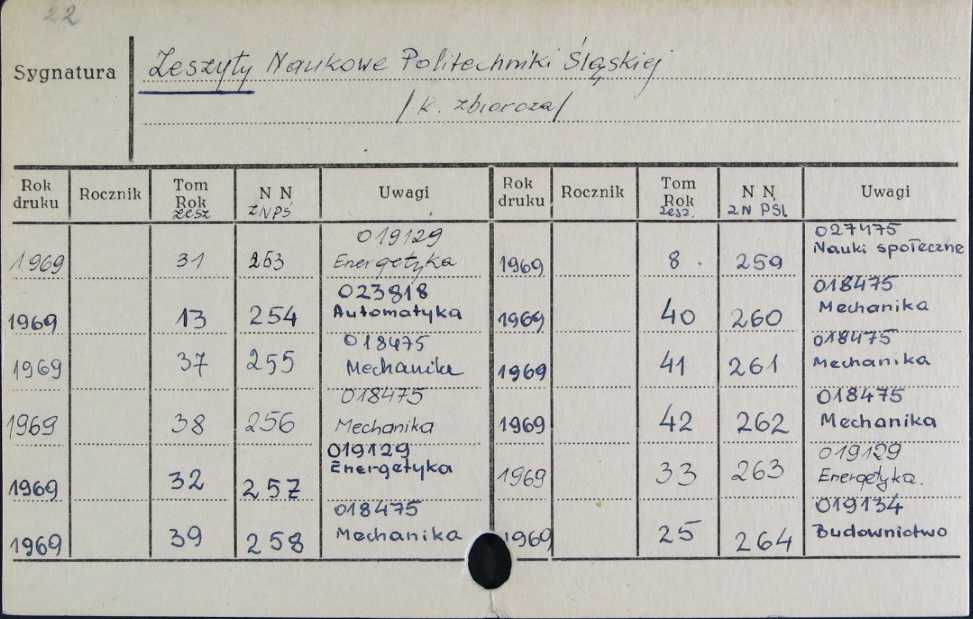 22
Sygnatura Zeszyty Naukowe Politechniki Śląskiej
/k. zbiorcza/
Rok druku Rocznik Tom Rok zesz N N ZNPŚ Uwagi Rok druku Rocznik Tom Rok zesz. N N ZN PŚl. Uwagi
1969 31 253 019129 Energetyka 1969 8. 259 027475 Nauki społeczne
1969 13 254 023818 Automatyka 1969 40 260 018475 Mechanika
1969 37 255 018475 Mechanika 1969 41 261 018475 Mechanika
1969 38 256 018475 Mechanika 1969 42 262 018475 Mechanika
1969 32 257 019129 Energetyka 1969 33 263 019129 Energetyka.
1969 39 258 018475 Mechanika 1969 25 264 019134 Budownictwo